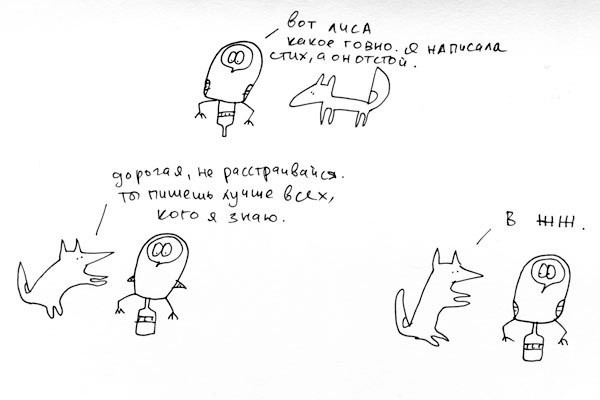 вот лиса
какое говно. я написала
стих, а он отстой.
дорогая, не расстраивайся.
ты пишешь лучше всех,
кого я знаю.
в жж.